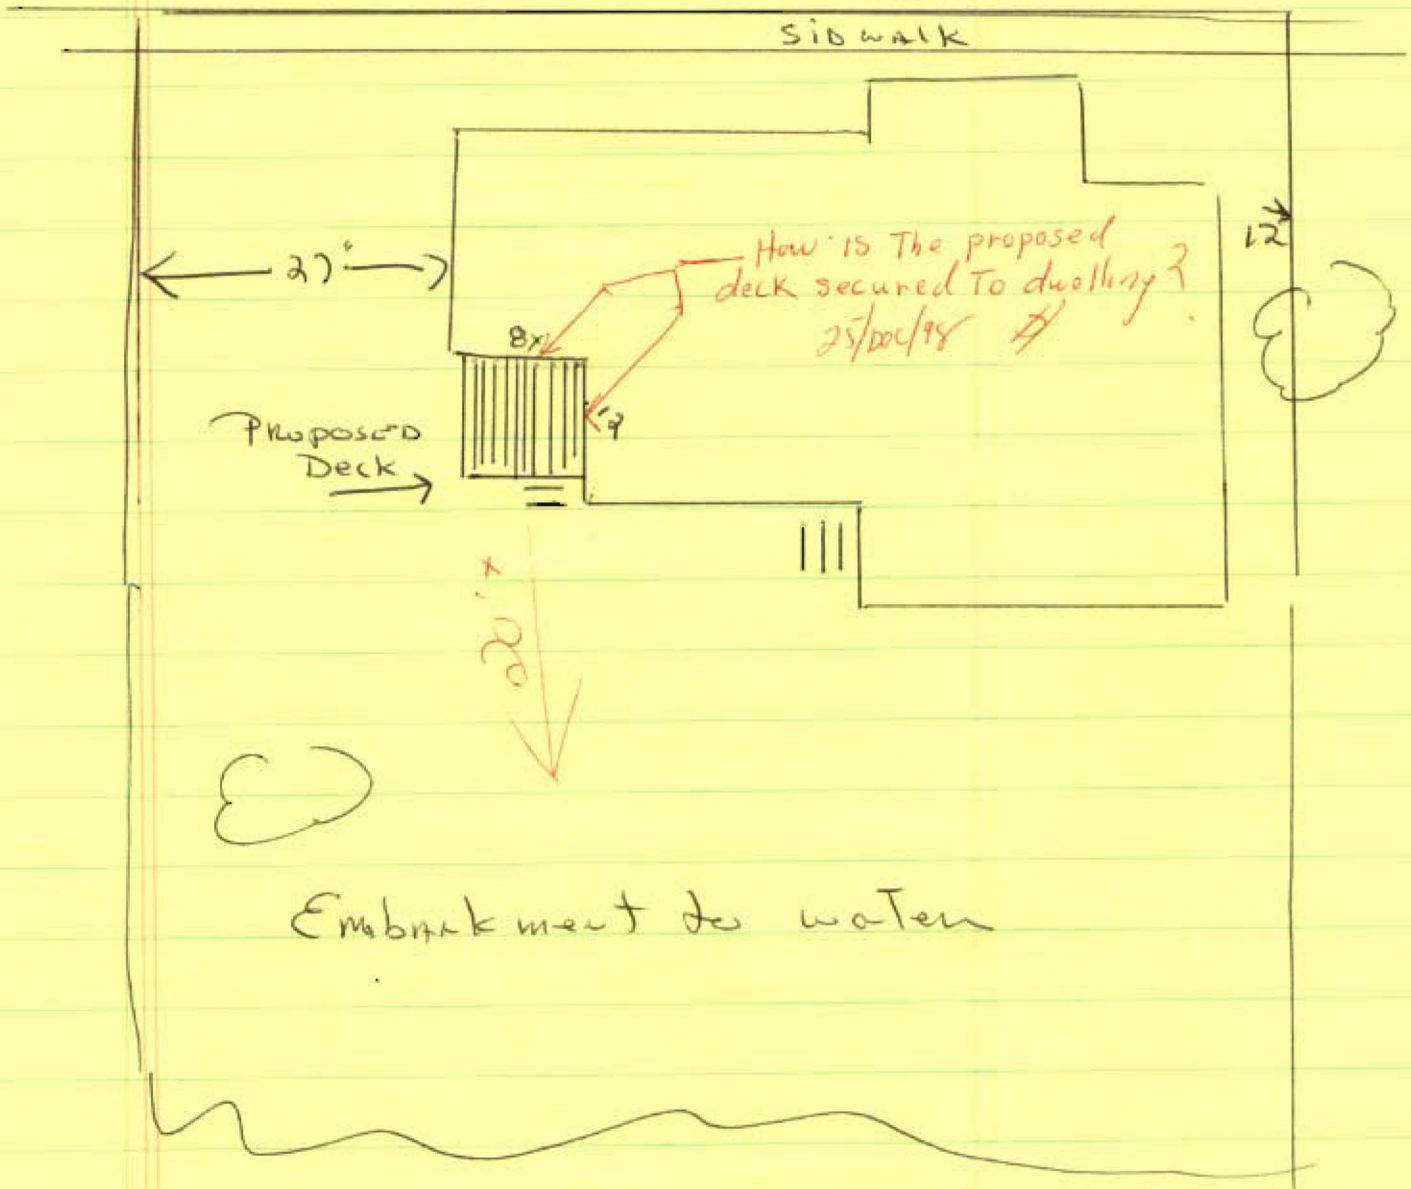 SIDWALK
How is The proposed
deck secured To dwelling?
25/DEC/98
12'
27'
8x
9
Proposed
Deck
20'±
Embankment to water